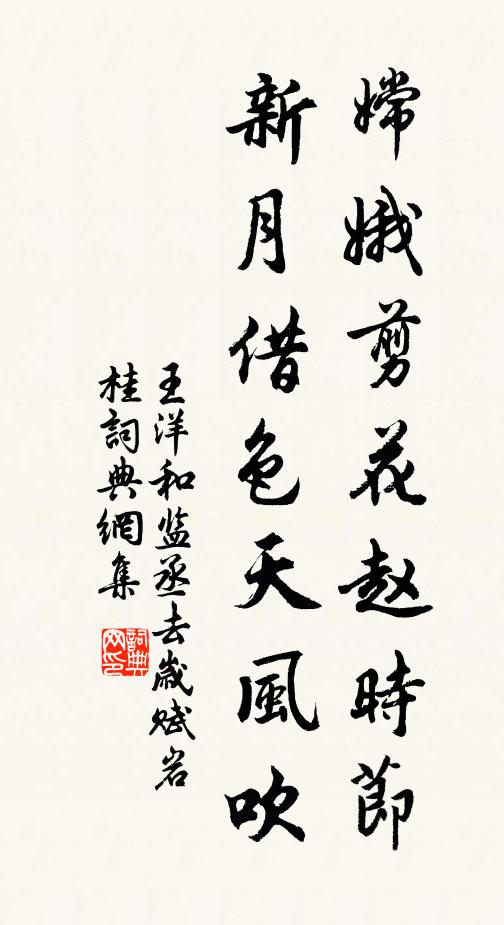 嫦娥剪花赵時節
新月借色天風吹
王洋和监丞去歲赋岩
桂詞典網集
詞典网印